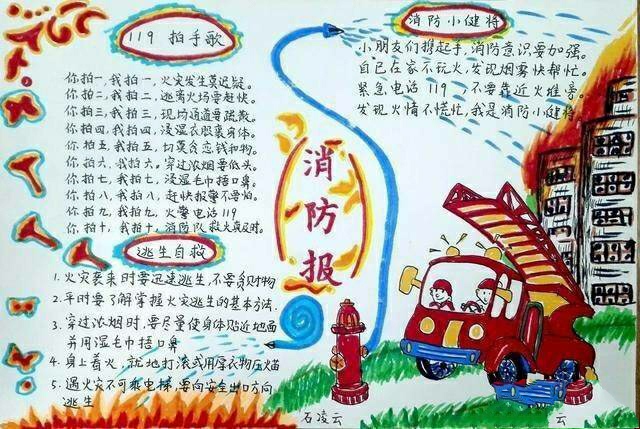 119 拍手歌
你拍一,我拍一,火灾发生莫迟疑。
你拍二,我拍二,逃离火场要赶快。
你拍三,我拍三,现场通道要疏散。
你拍四,我拍四,浸湿衣服裹身体。
你拍五,我拍五,切莫贪恋钱和物。
你拍六,我拍六,穿过浓烟要低头。
你拍七,我拍七,浸湿毛巾捂口鼻。
你拍八,我拍八,赶快报警不要怕。
你拍九,我拍九,火警电话119
你拍十,我拍十,消防队救火真及时。
逃生自救
1.火灾袭来时要迅速逃生,不要贪财物
2.平时要了解掌握火灾逃生的基本方法.
3.穿过浓烟时,要尽量使身体贴近地面
并用湿毛巾捂口鼻
4.身上着火,就地打滚或用厚衣物压火苗
5.遇火灾不可乘电梯,要向安全出口方向
逃生
消防报
消防小健将
小朋友们携起手,消防意识要加强。
自己在家不玩火,发现烟雾快帮忙。
紧急电话119 不要靠近火堆旁。
发现火情不慌忙,我是消防小健将。
石凌云
云